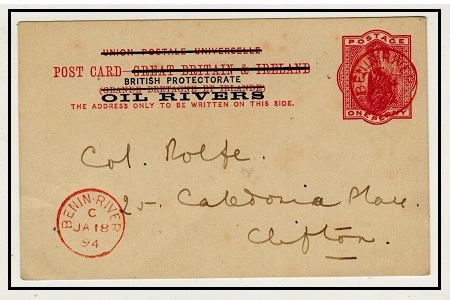 UNION POSTALE UNIVERSELLE
POST CARD—GREAT BRITAIN & IRELAND
BRITISH PROTECTORATE
(GRANDE BRETAGNE ET IRLANDE)
OIL RIVERS
THE ADDRESS ONLY TO BE WRITTEN ON THIS SIDE.
POSTAGE
ONE PENNY
Col. Rolfe.
25. Caledonia Place.
Clifton.
BENIN·RIVER
C
JA 18
94